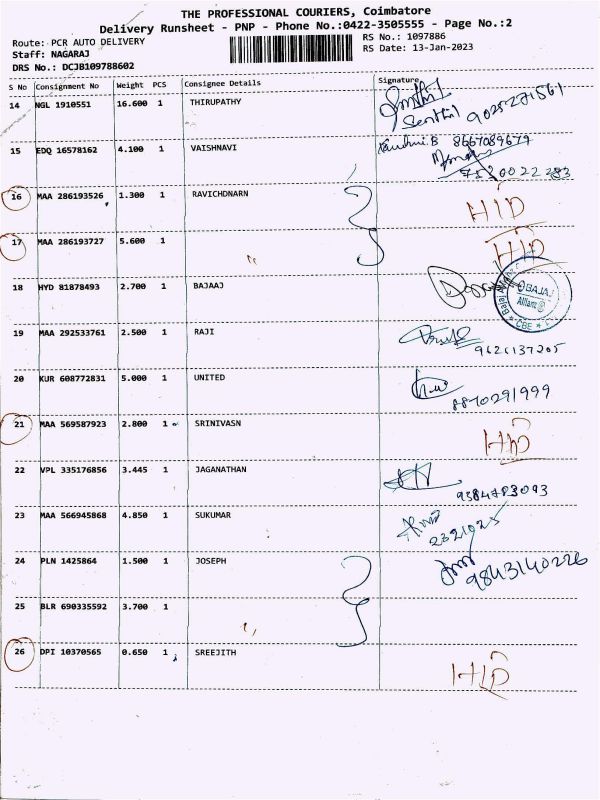 THE PROFESSIONAL COURIERS, Coimbatore
Delivery Runsheet - PNP - Phone No.:0422-3505555 - Page No.:2
Route: PCR AUTO DELIVERY RS No.: 1097886
Staff: NAGARAJ RS Date: 13-Jan-2023
DRS No.: DCJB109788602
S No Consignment No Weight PCS Consignee Details Signature
14 NGL 1910551 16.600 1 THIRUPATHY
Senthil 9025271561
15 EDQ 16578162 4.100 1 VAISHNAVI 8667089679
16 MAA 286193526 1.300 1 RAVICHDNARN HID
17 MAA 286193727 5.600 1 HID
18 HYD 81878493 2.700 1 BAJAAJ
Bajaj Allianz
BAJAJ
Allianz
CBE
19 MAA 292533761 2.500 1 RAJI
9626137205
20 KUR 608772831 5.000 1 UNITED
8870291999
21 MAA 569587923 2.800 1 SRINIVASN HID
22 VPL 335176856 3.445 1 JAGANATHAN
9384783093
23 MAA 566945868 4.850 1 SUKUMAR
2321925
24 PLN 1425864 1.500 1 JOSEPH
9843140226
25 BLR 690335592 3.700 1
26 DPI 10370565 0.650 1 SREEJITH HID